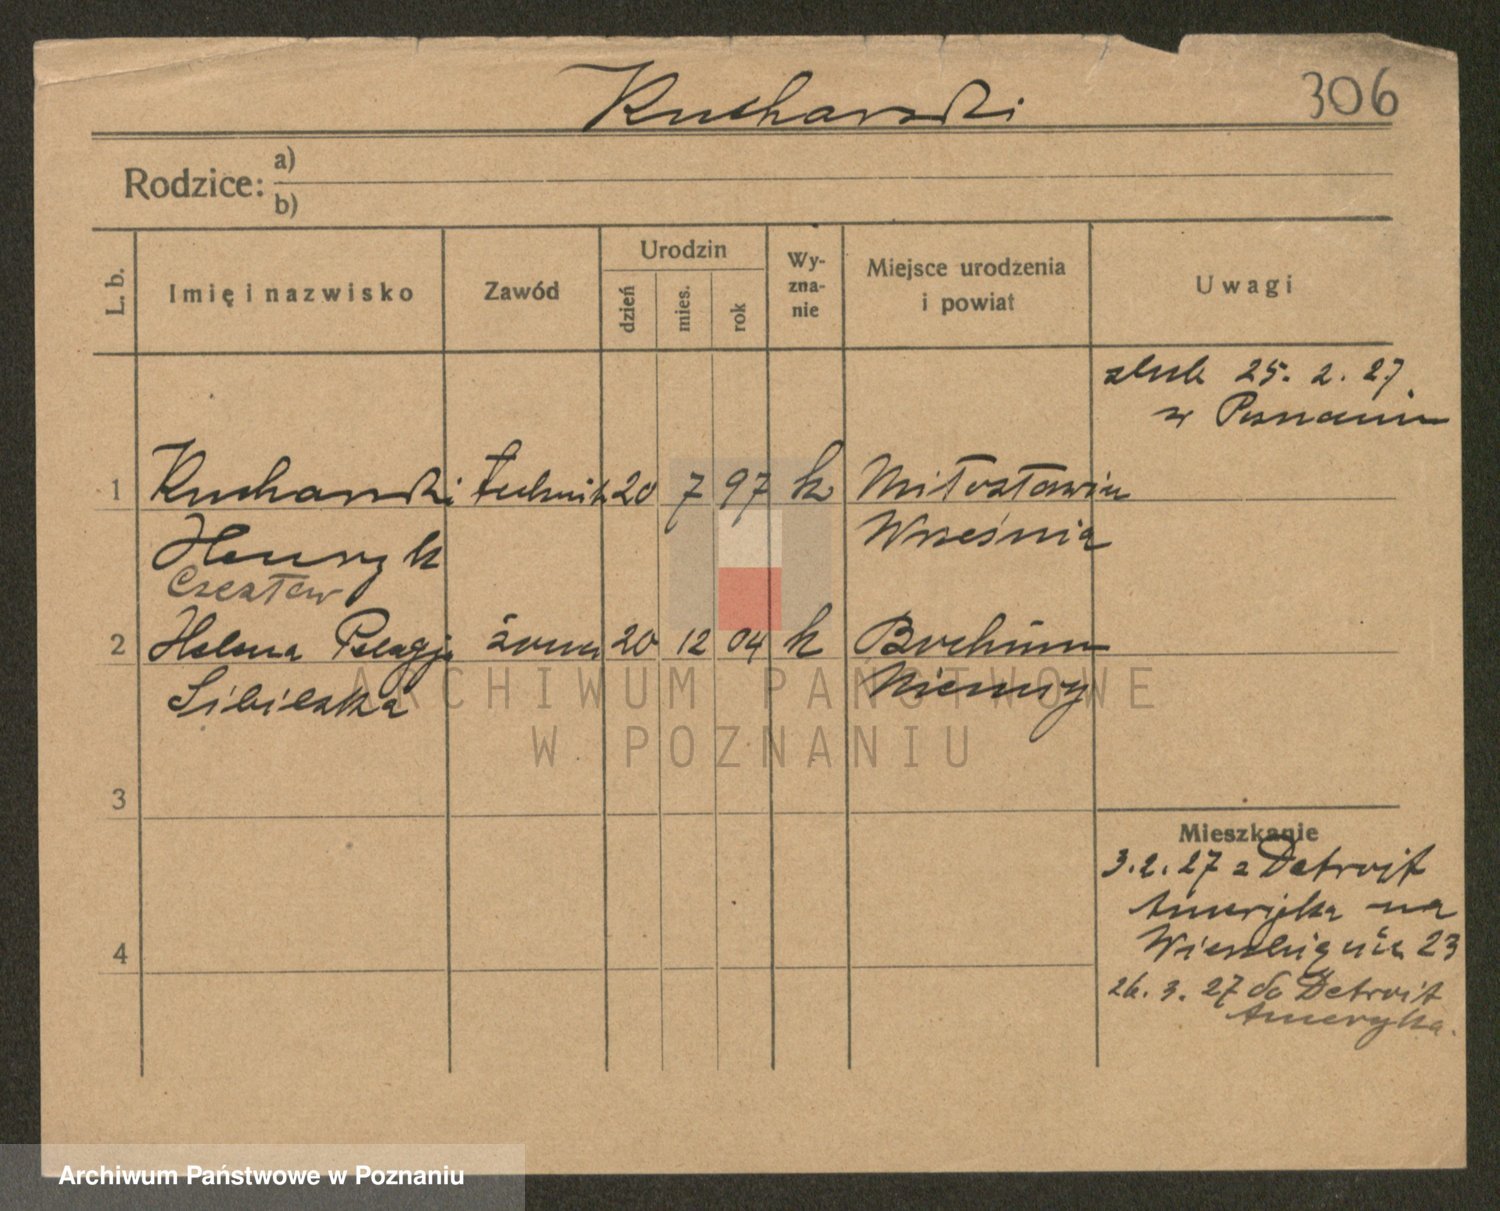 Kucharski
306
Rodzice: a)
b)
L. b.
Imię i nazwisko
Zawód
Urodzin
dzień
mies.
rok
Wy-
zna-
nie
Miejsce urodzenia
i powiat
Uwagi
ślub 25. 2. 27
w Poznaniu
1 Kucharski technik 20 7 97 k Miłosławiu
Henryk Września
Czesław
2 Helena Pelagja żona 20 12 04 k Bochum
Sibilska Niemcy
3
4
Mieszkanie
3. 2. 27 z Detrojt
Ameryka na
23
26. 3. 27 do Detroit
Ameryka.
ARCHIWUM PAŃSTWOWE
W POZNANIU
Archiwum Państwowe w Poznaniu